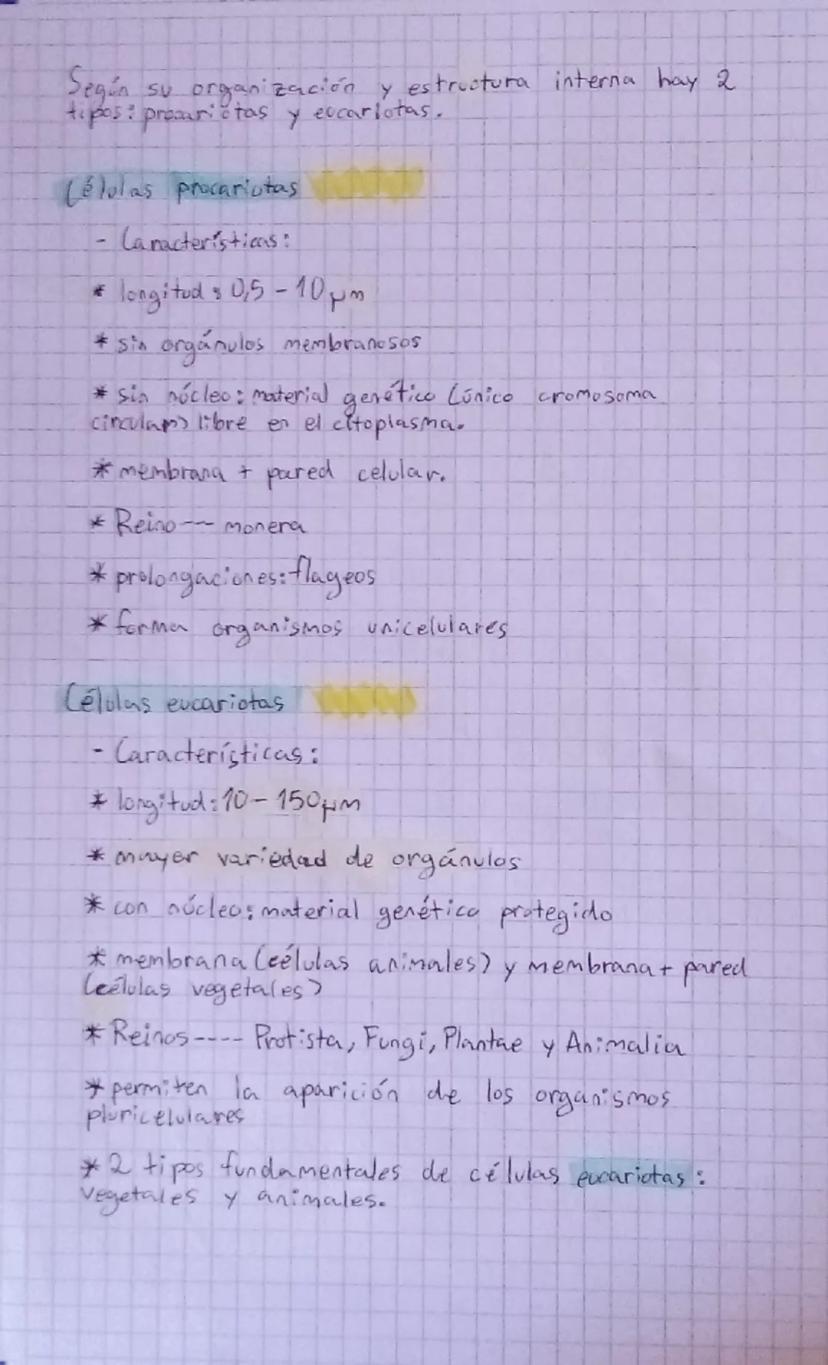 Según su organización y estructura interna hay 2
tipos: procariotas y eucariotas.
Células procariotas
- Características:
* longitud: 0,5 - 10 μm
* sin orgánulos membranosos
* sin núcleo: material genético (único cromosoma
circular) libre en el citoplasma.
* membrana + pared celular.
* Reino -- monera
* prolongaciones: flageos
* forma organismos unicelulares
Células eucariotas
- Características:
* longitud: 10 - 150 μm
* mayor variedad de orgánulos
* con núcleo: material genético protegido
* membrana (células animales) y membrana + pared
(células vegetales)
* Reinos ---- Protista, Fungi, Plantae y Animalia
* permiten la aparición de los organismos
pluricelulares
* 2 tipos fundamentales de células eucariotas:
vegetales y animales.